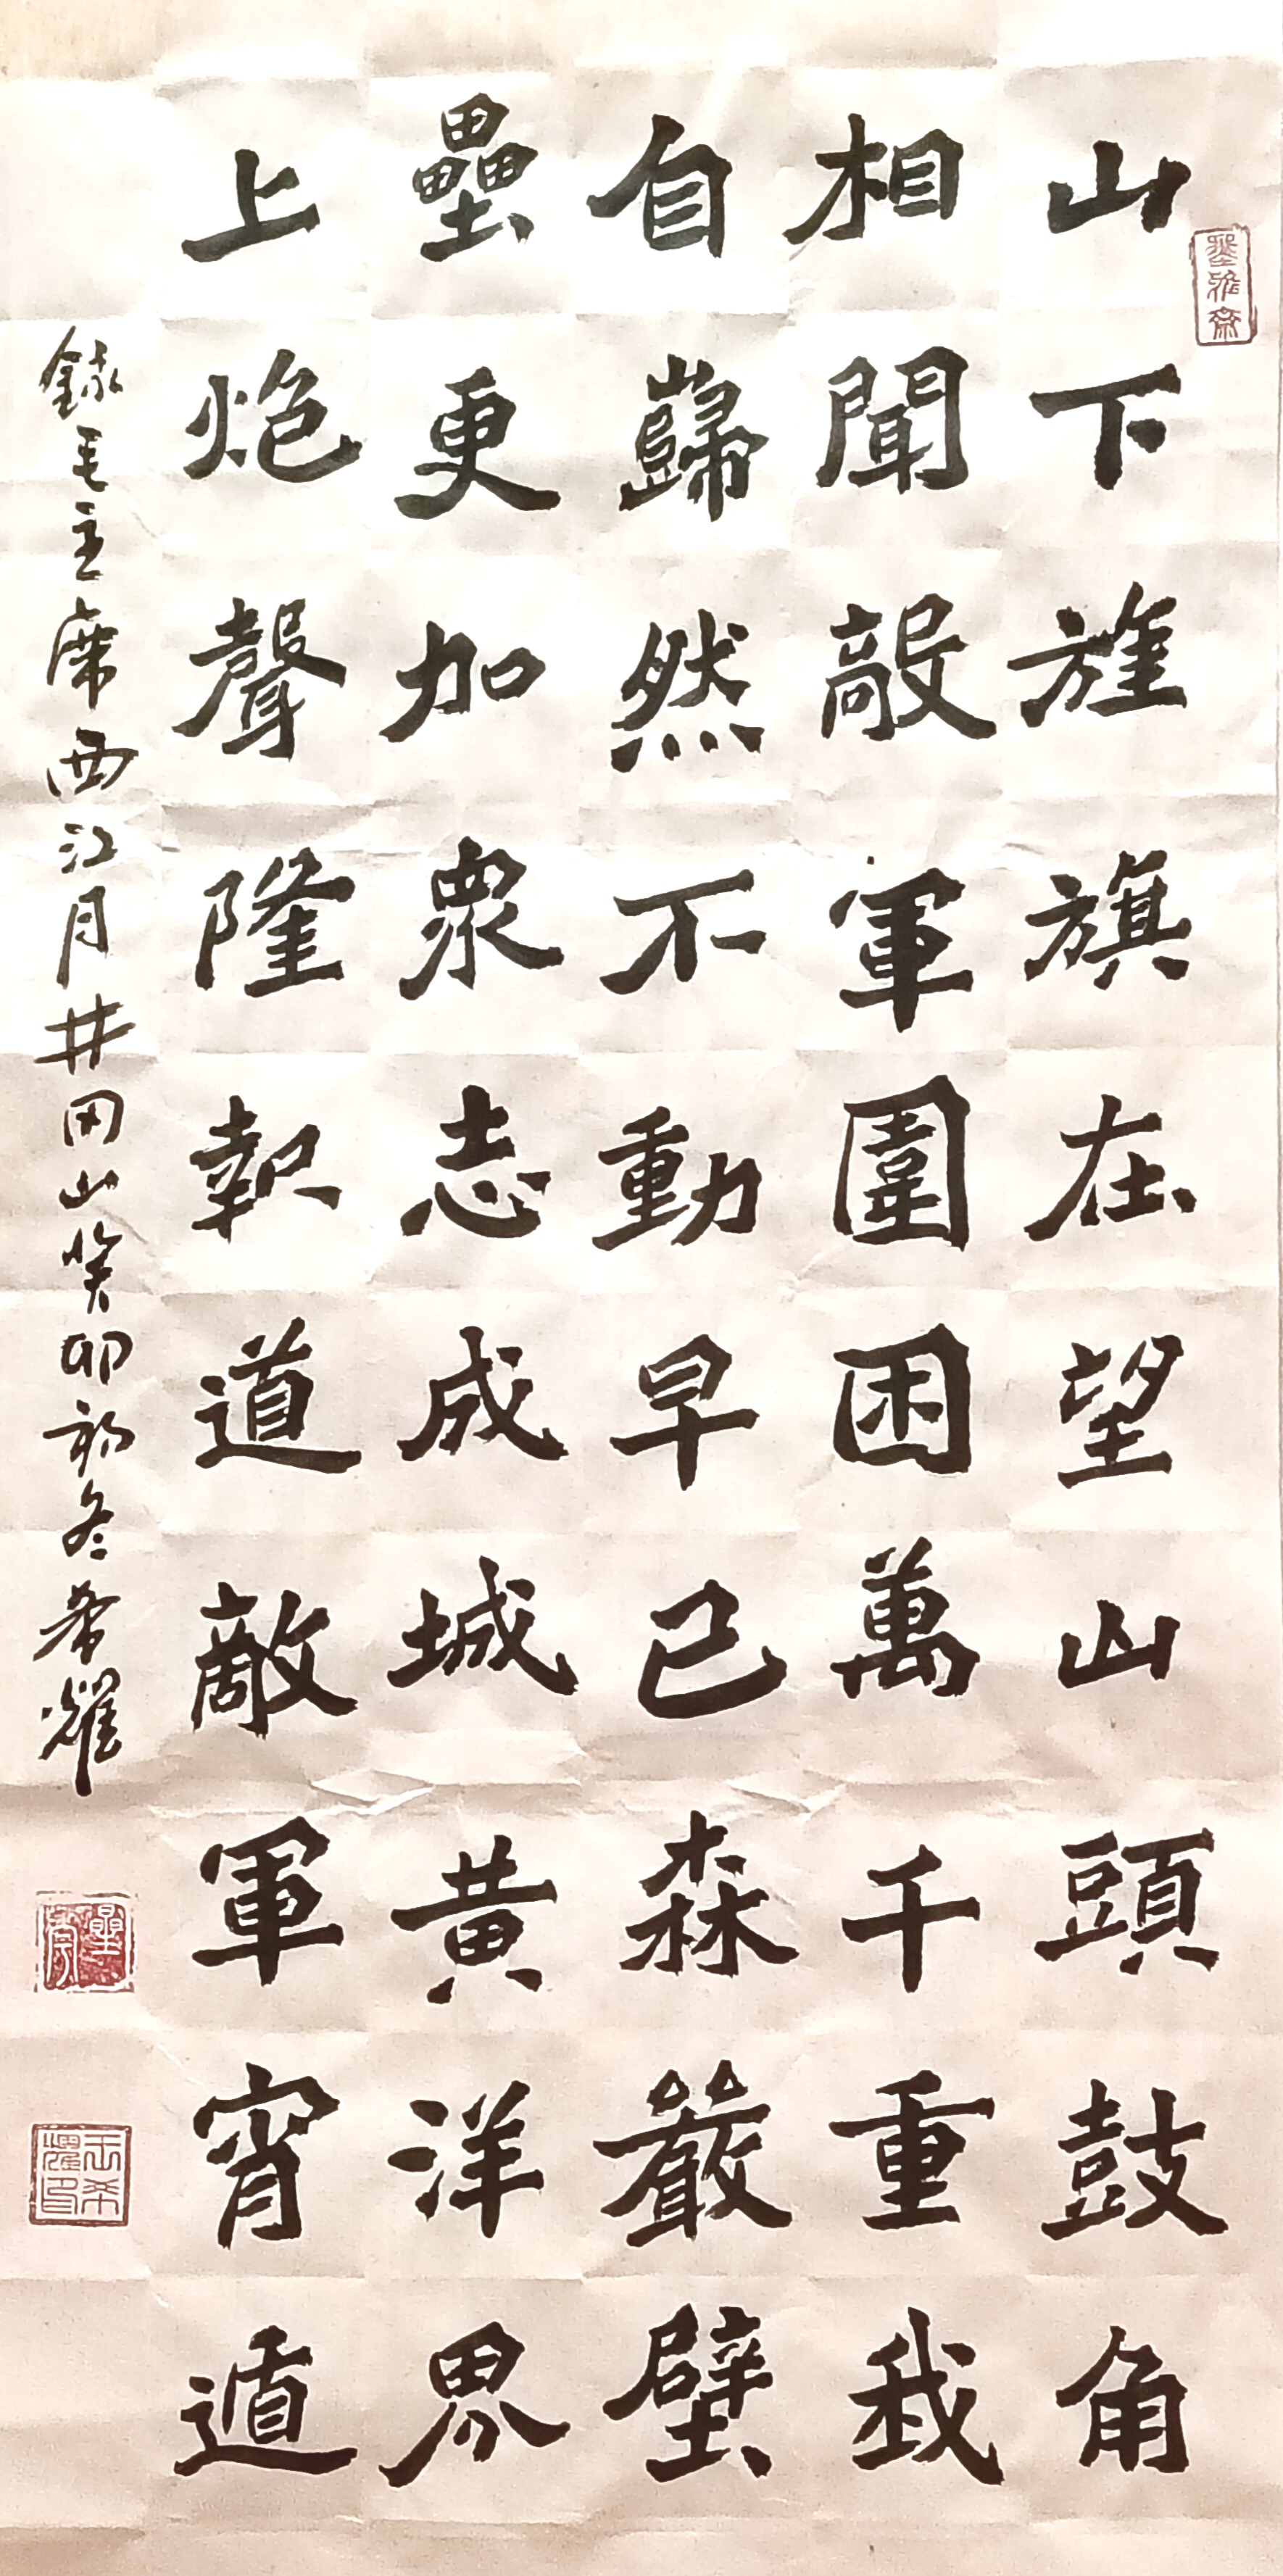 山下旌旗在望山頭鼓角
相聞敵軍圍困萬千重我
自巋然不動早已森嚴壁
壘更加眾志成城黃洋界
上炮聲隆報道敵軍宵遁
錄毛主席西江月井冈山癸卯初冬希耀
王希耀印